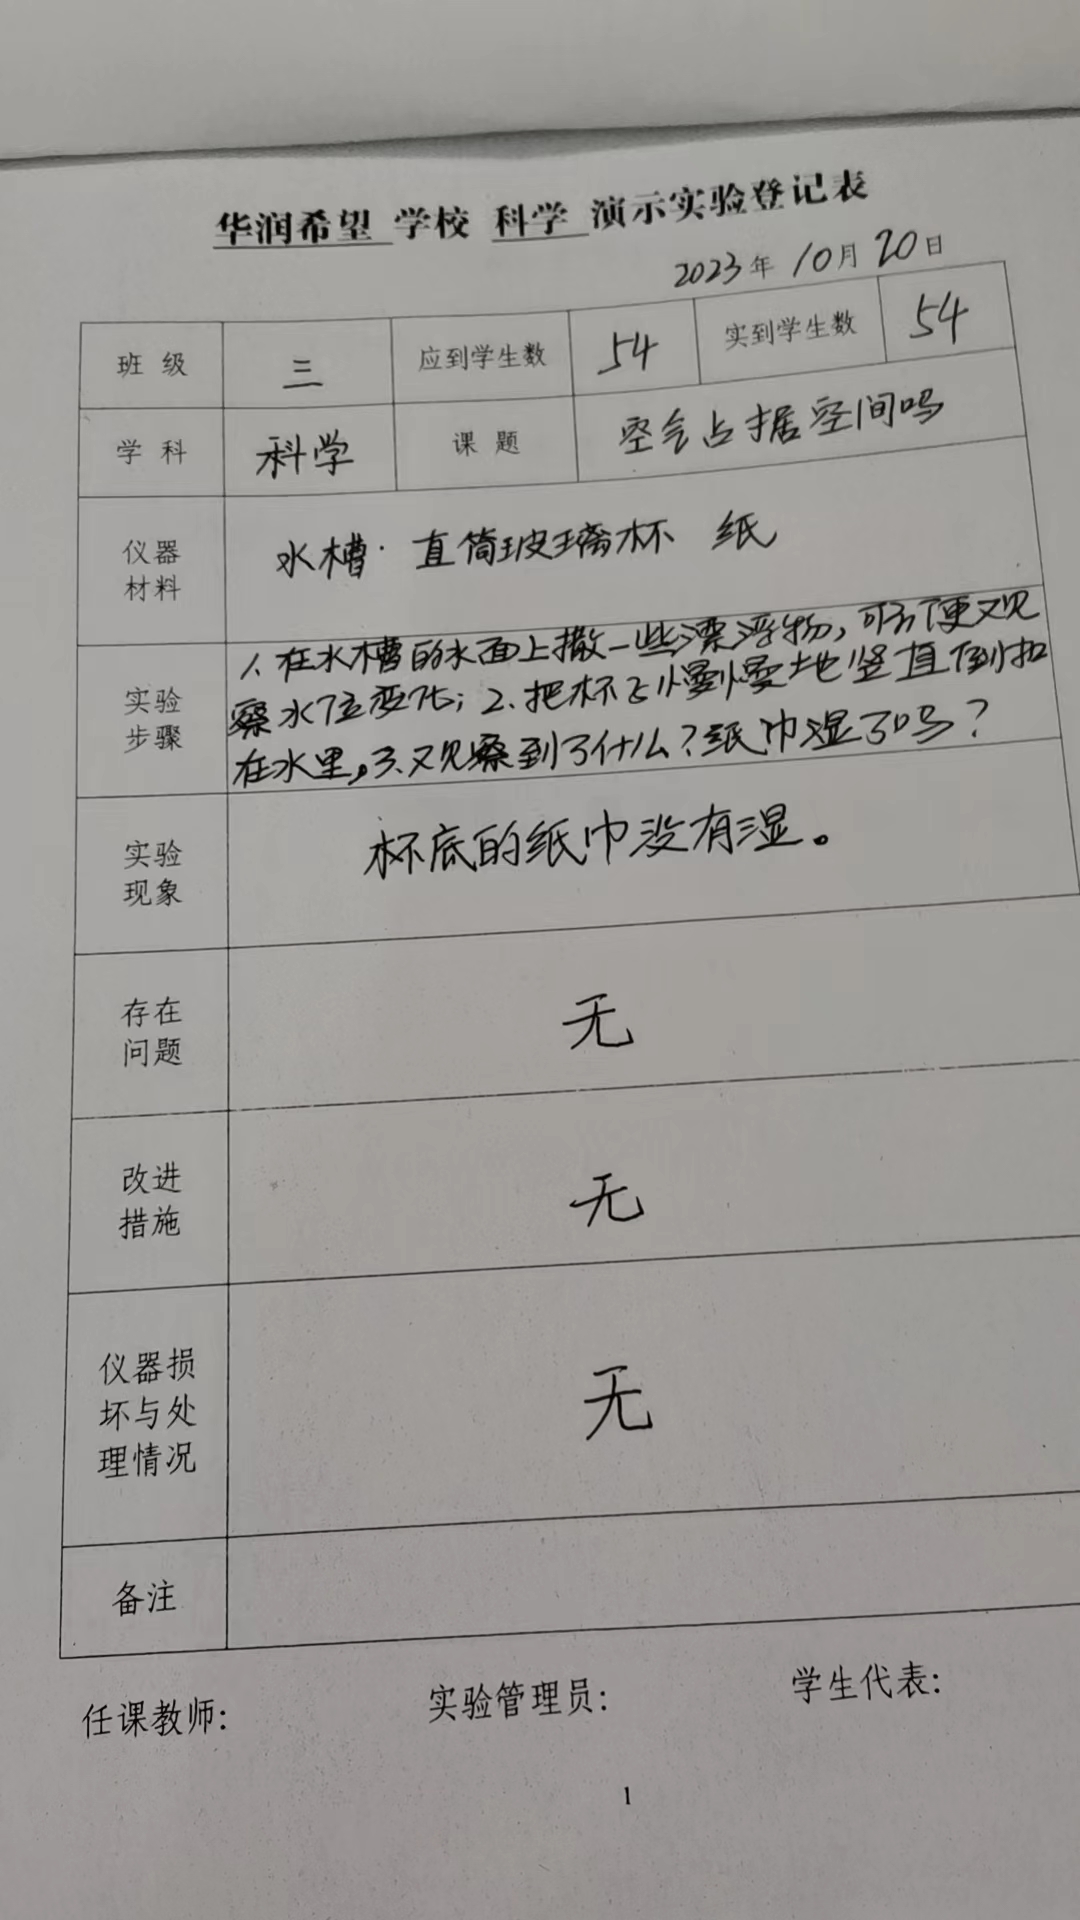 华润希望 学校 科学 演示实验登记表
2023年 10月 20日
班 级 三 应到学生数 54 实到学生数 54
学 科 科学 课 题 空气占据空间吗
仪器
材料
水槽· 直筒玻璃杯 纸
实验
步骤
1. 在水槽的水面上撒一些漂浮物,可方便观
察水位变化; 2. 把杯子慢慢地竖直倒扣
在水里。3. 观察到了什么?纸巾湿了吗?
实验
现象
杯底的纸巾没有湿。
存在
问题
无
改进
措施
无
仪器损
坏与处
理情况
无
备注
任课教师: 实验管理员: 学生代表:
1